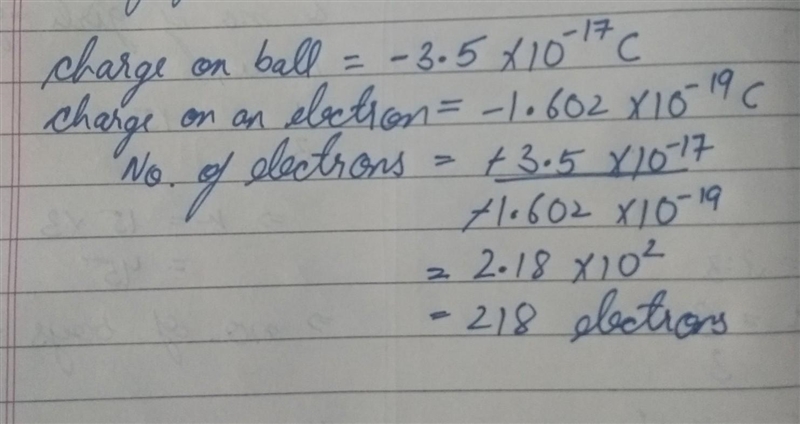 charge on ball = -3.5 x10⁻¹⁷ C
charge on an electron = -1.602 x10⁻¹⁹ C
No. of electrons = +3.5 x10⁻¹⁷
+1.602 x10⁻¹⁹
= 2.18 x10²
= 218 electrons